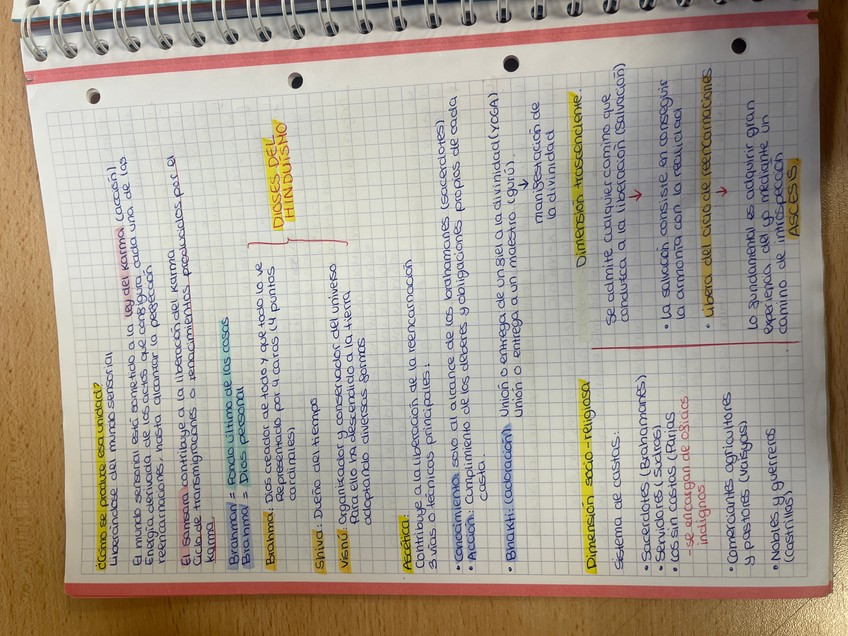 ¿Cómo se produce esa unidad?
Liberándose del mundo sensorial
El mundo sensorial está sometido a la ley del karma (acción).
Energía derivada de los actos que configura cada una de las
reencarnaciones, hasta alcanzar la perfección
El samsara contribuye a la liberación del karma
Ciclo de transmigraciones o renacimientos producidos por el
karma
Brahman = Fondo último de las cosas
Brahma = Dios personal
Brahma: Dios creador de todo y que todo lo ve
Representado por 4 caras (4 puntos
cardinales)
Shiva: Dueño del tiempo
Visnú: Organizador y conservador del universo
Para ello ha descendido a la tierra
adoptando diversas formas
DIOSES DEL
HINDUISMO
Ascética:
Contribuye a la liberación de la reencarnación
3 vías o técnicas principales:
• Conocimiento: solo al alcance de los brahamanes (sacerdotes)
• Acción: Cumplimiento de los deberes y obligaciones propios de cada
casta.
• Bhakti: (adoración) Unión o entrega de un fiel a la divinidad (YOGA)
Unión o entrega a un maestro (gurú).
↓
manifestación de
la divinidad
Dimensión socio-religiosa
Sistema de castas:
• Sacerdotes (Brahamanes)
• Servidores (Sudras)
• Los sin castas (Parias
- se encargan de oficios
indignos
• Comerciantes agricultores
y pastores (Vaisyas)
• Nobles y guerreros
Dimensión trascendente.
Se admite cualquier camino que
conduzca a la liberación (salvación)
↓
• La salvación consiste en conseguir
la armonía con la realidad
• Libera del ciclo de reencarnaciones
↓
Lo fundamental es adquirir gran
experiencia del yo mediante un
camino de introspección
ASCESIS